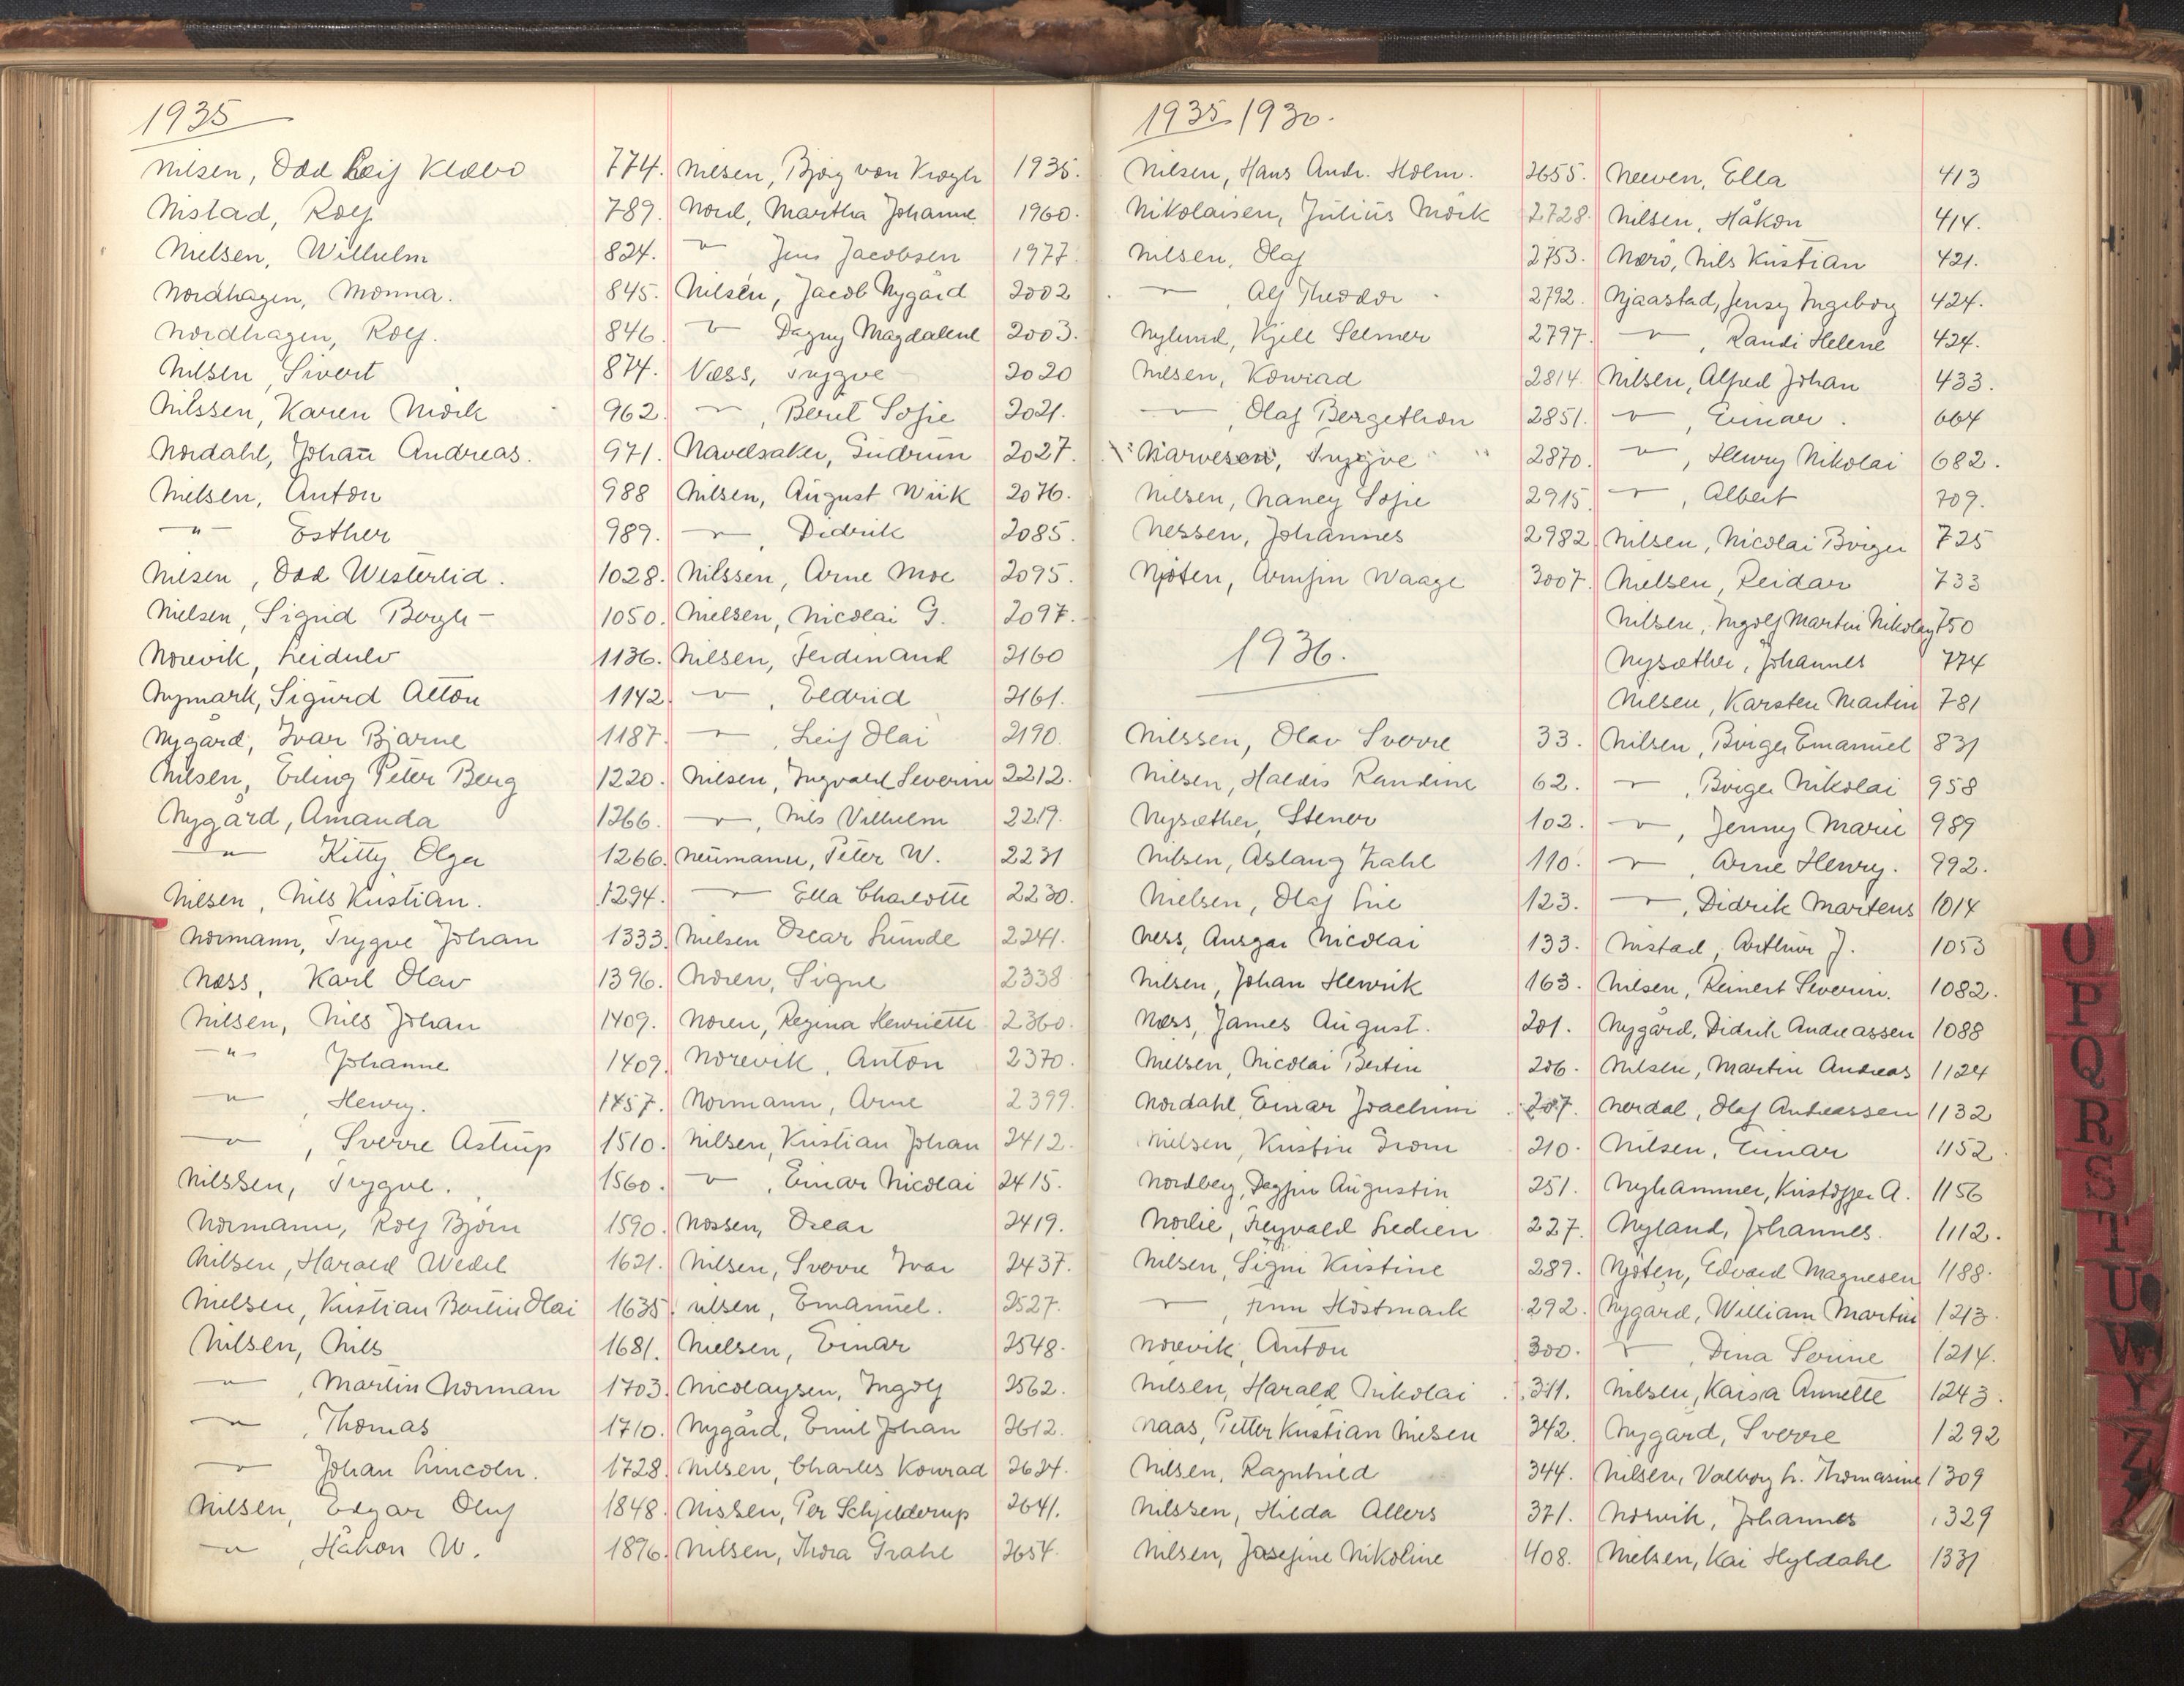 1935
Nilsen, Odd Leif Klæbo 774.
Nistad, Rolf 789.
Nielsen, Wilhelm 824.
Nordhagen, Monna. 845.
Nordhagen, Rolf. 846.
Nilsen, Sivert 874.
Nilssen, Karen Mørk 962.
Nordahl, Johan Andreas. 971.
Nielsen, Anton 988
-"- Esther 989.
Nilsen, Odd Westerlid. 1028.
Nielsen, Sigrid Bergh- 1050.
Norevik, Leidulv 1136.
Nymark, Sigurd Alton 1142.
Nygård, Ivar Bjarne 1187.
Nilsen, Erling Peter Berg 1220.
Nygård, Amanda 1266.
-"- Kitty Olga 1266.
Nilsen, Nils Kristian. 1294.
Normann, Trygve Johan 1333.
Næss, Karl Olav 1396.
Nilsen, Nils Johan 1409.
-"- Johanne 1409.
-"-, Henry. 1457.
-"-, Sverre Astrup 1510.
Nilssen, Trygve. 1560.
Normann, Rolf Bjørn 1590.
Nilsen, Harald Wedel 1621.
Nielsen, Kristian Bertin Olai 1635.
Nilsen, Nils 1681.
-"-, Martin Norman 1703.
-"-, Thomas 1710.
-"- Johan Lincoln. 1728.
Nilsen, Edgar Oluf 1848.
-"-, Håkon W. 1896.
Nilsen, Bjørg von Krogh 1935.
Nord, Martha Johanne 1960.
-"- Jens Jacobsen 1977
Nilsen, Jacob Nygård 2002
-"- Dagny Magdalene 2003.
Næss, Trygve 2020
-"-, Berit Sofie 2021.
Navelsaker, Gudrun 2027.
Nilsen, August Wiik 2076.
-"-, Didrik 2085.
Nilssen, Arne Moe 2095.
Nielsen, Nicolai G. 2097.
Nilsen, Ferdinand 2160
-"-, Eldrid 2161.
-"-, Leif Olai 2190.
Nilsen, Ingvald Severin 2212.
-"-, Nils Vilhelm 2219.
Neumann, Peter W. 2231
-"- Ella Charlotte 2230.
Nielsen Oscar Sunde 2241.
Noren, Signe 2338
Noren, Regina Henriette 2360.
Norevik, Anton 2370.
Normann, Arne 2399.
Nilsen, Kristian Johan 2412.
-"-, Einar Nicolai 2415.
Nossen, Oscar 2419.
Nilsen, Sverre Ivar 2437.
ilsen, Emanuel. 2527.
Nielsen, Einar 2548.
Nicolaysen, Ingolf 2562.
Nygård, Emil Johan 2612.
Nilsen, Charles Konrad 2624.
Nissen, Per Schjelderup 2641.
Nilsen, Thora Grahl 2654.
1935/1936.
Nilsen, Hans Andr. Holm. 2655.
Nikolaisen, Julius Mørk 2728.
Nilsen, Olaf 2753.
-"-, Alf Theodor 2792.
Nylund, Kjell Selmer 2797.
Nilsen, Konrad 2814.
-"-, Olaf Bergethon 2851.
Narvesen, Yngve 2870.
Nilsen, Nancy Sofie 2915
Nessen, Johannes 2982
Njøten, Arnfin Waage 3007.
1936.
Nilssen, Olav Sverre 33.
Nilsen, Haldis Randine 62.
Nysæther, Stener 102.
Nilsen, Aslaug Kahl 110.
Nielsen, Olaf Lie 123.
Ness, Ansgar Nicolai 133.
Nilsen, Johan Henrik 163.
Næss, James August. 201.
Nielsen, Nicolai Bertin 206.
Nordahl, Einar Joachim 207.
Nielsen, Kristin From 210.
Nordberg, Dagfin Augustin 251.
Norlie, Freyvald Ledien 227.
Nilsen, Signi Kristine 289.
-"-, Finn Høstmark 292.
Norevik, Anton 300.
Nilsen, Harald Nikolai 311.
Naas, Petter Kristian Nilsen 342.
Nilsen, Ragnhild 344.
Nilssen, Hilda Allers 371.
Nilsen, Josefine Nikoline 408.
Neeven, Ella 413
Nilsen, Håkon 414.
Nærø, Nils Kristian 421.
Njaastad, Jensy Ingeborg 424.
-"-, Randi Helene 424.
Nilsen, Alfred Johan 433.
-"-, Einar. 664
-"-, Henry Nikolai 682.
-"-, Albert 709.
Nilsen, Nicolai Birger 725
Nielsen, Reidar 733
Nilsen, Ingolf Martin Nikolay 750
Nysæther, Johannes 774
Nilsen, Karsten Martin 781
Nilsen, Birger Emanuel 831
-"-, Birger Nikolai 958
-"-, Jenny Marie 989
-"-, Arne Henry. 992.
-"-, Didrik Martens 1014
Nistad, Arthur J. 1053
Nilsen, Reinert Severin. 1082.
Nygård, Didrik Andreassen 1088
Nilsen, Martin Andreas 1124
Nordal, Olaf Andreassen 1132
Nilsen, Einar 1152.
Nyhammer, Kristoffer A. 1156
Nyland, Johannes. 1112.
Njøten, Edvard Magnesen 1188.
Nygård, William Martin 1213.
-"-, Dina Serine 1214.
Nilsen, Kaisa Annette 1243.
Nygård, Sverre 1292
Nilsen, Valborg L. Thomasine 1309
Norvik, Johannes 1329
Nielsen, Kai Hyldahl 1331
O
P
Q
R
S
T
U
W
Y
Z